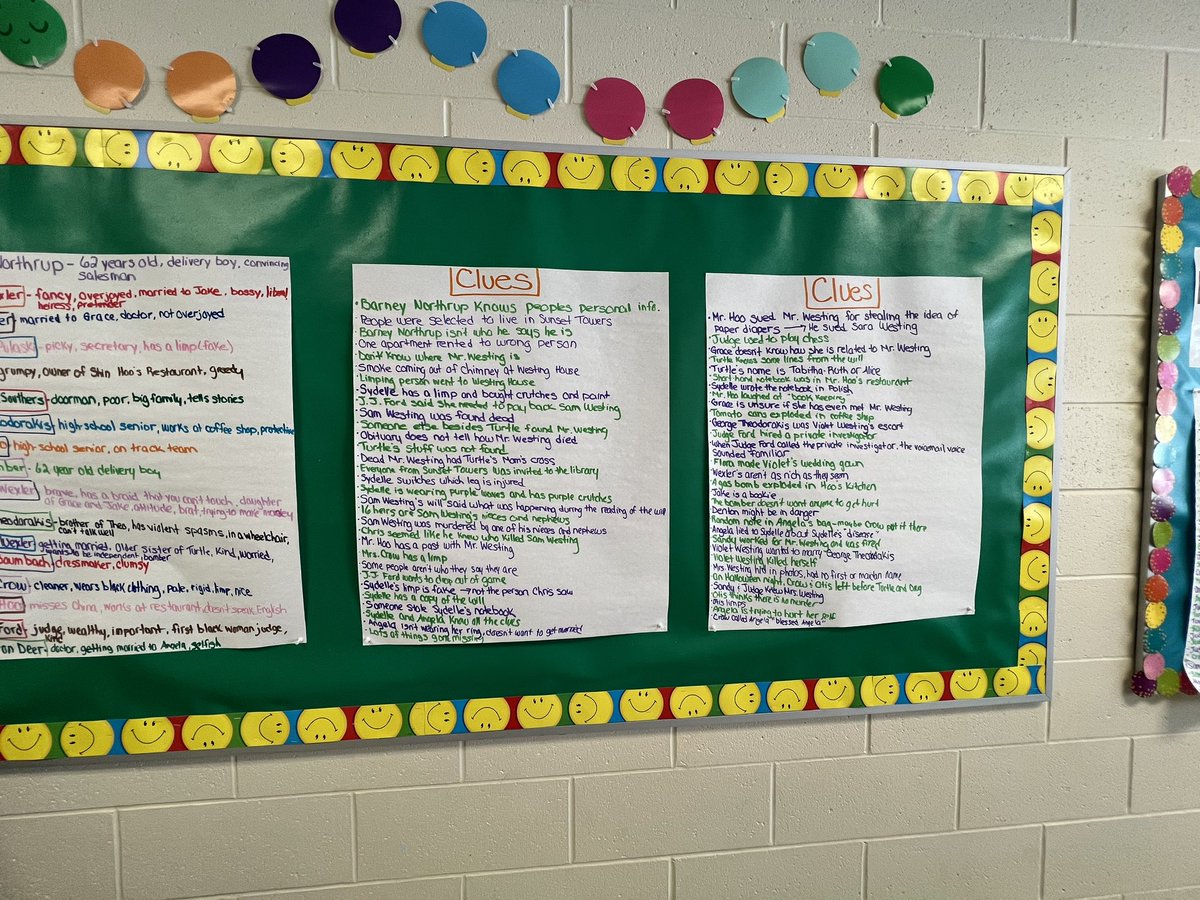 Northrup - 62 years old, delivery boy, convincing
salesman
xler - fancy, overjoyed, married to Jake, bossy,
heiress, pretender
er - married to Grace, doctor, not overjoyed
Pulaski - picky, secretary, has a limp (fake)
grumpy, owner of Shin Hoo's Restaurant, greedy
Southers - doorman, poor, big family, tells stories
odorakis - high school senior, works at coffee shop, protective
high school senior, on track team
mber - 62 year old delivery boy
Wexler - brave, has a braid that you can't touch, daughter
of Grace and Jake, attitude, brat, trying to make money
heodorakis - brother of Theo, has violent spasms, in a wheelchair,
can't talk well
Wexler - getting married, older sister of Turtle, Kind, worried,
wants to be independent, bomber
aumbach - dressmaker, clumsy
Crow - cleaner, wears black clothing, pale, rigid, limp, nice
Hoo - misses China, works at restaurant, doesn't speak English
Ford - judge, wealthy, important, first black woman judge,
King
on Deer - doctor, getting married to Angela, selfish
Clues
• Barney Northrup Knows peoples personal info.
• People were selected to live in Sunset Towers
• Barney Northrup isn't who he says he is
• One apartment rented to wrong person
• Don't Know where Mr. Westing is
• Smoke coming out of Chimney at Westing House
• Limping person went to Westing House
• Sydelle has a limp and bought crutches and paint
• J.J. Ford said she needed to pay back Sam Westing
• Sam Westing was found dead
• Someone else besides Turtle found Mr. Westing
• Obituary does not tell how Mr. Westing died
• Turtle's stuff was not found
• Dead Mr. Westing had Turtle's Mom's cross
• Everyone from Sunset Towers was invited to the library
• Sydelle switches which leg is injured
• Sydelle is wearing purple waves and has purple crutches
• Sam Westing's will said what was happening during the reading of the will
• 16 heirs are Sam Westing's nieces and nephews
• Sam Westing was murdered by one of his nieces and nephews
• Chris seemed like he knew who killed Sam Westing
• Mr. Hoo has a past with Mr. Westing
• Mrs. Crow has a limp
• Some people aren't who they say they are
• J.J. Ford wants to drop out of game
• Sydelle's limp is fake → not the person Chris saw
• Sydelle has a copy of the will
• Someone stole Sydelle's notebook
• Sydelle and Angela Know all the clues
• Angela isn't wearing her ring, doesn't want to get married
• Lots of things gone missing
Clues
• Mr. Hoo sued Mr. Westing for stealing the idea of
paper diapers → He sued Sara Westing
• Judge used to play chess
• Grace doesn't know how she is related to Mr. Westing
• Turtle Knows some lines from the will
• Turtle's name is Tabitha-Ruth or Alice
• Short-hand notebook was in Mr. Hoo's restaurant
• Sydelle wrote the notebook in Polish
• Mr. Hoo laughed at "book Keeping"
• Grace is unsure if she has even met Mr. Westing
• Tomato cans exploded in coffee shop
• George Theodorakis was Violet Westing's escort
• Judge Ford hired a private investigator
• When Judge Ford called the private investigator, the voicemail voice
sounded familiar
• Flora made Violet's wedding gown
• Wexler's aren't as rich as they seem
• A gas bomb exploded in Hoo's Kitchen
• Jake is a bookie
• The bomber doesn't want anyone to get hurt
• Denton might be in danger
• Random note in Angela's bag - maybe Crow put it there
• Angela lied to Sydelle about Sydelle's "disease"
• Sandy worked for Mr. Westing and was fired
• Violet Westing wanted to marry George Theodorakis
• Violet Westing Killed herself
• Mrs. Westing hid in photos, had no first or maiden name
• On Halloween night, Crow & Otis left before Turtle and Doug
• Sandy & Judge Knew Mrs. Westing
• Otis thinks there is a murder
• Otis limps
• Angela is trying to hurt her self
• Crow called Angela "blessed Angela"